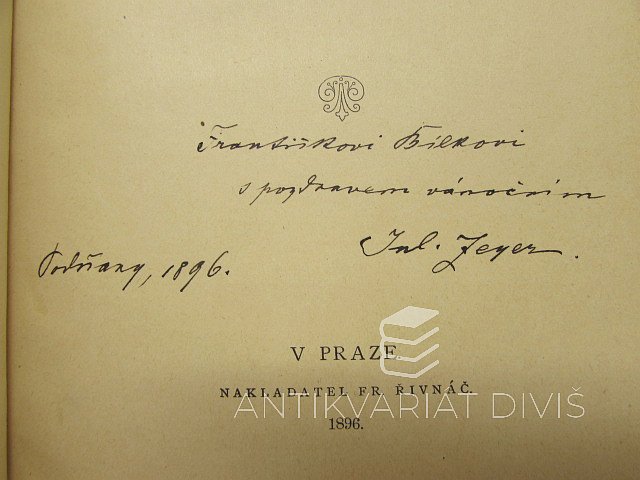 Františkovi Bílkovi
s pozdravem vánočním
Jul. Zeyer.
Vodňany, 1896.
V PRAZE.
NAKLADATEL FR. ŘIVNÁČ.
ANTIKVARIAT DIVIŠ
1896.